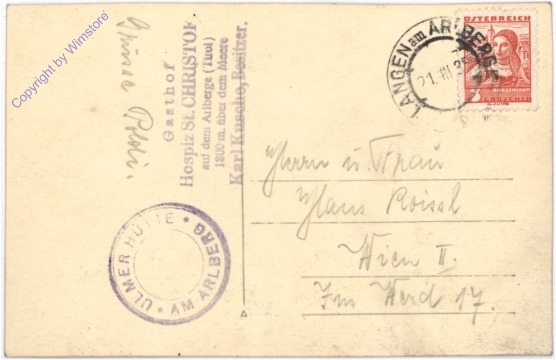 Copyright by Wimstore
Gasthof
Hospiz St. CHRISTOF
auf dem Arlberge (Tirol)
1800 m. über dem Meere
Karl Kusche, Besitzer.
ULMER HÜTTE • AM ARLBERG •
LANGEN am ARLBERG
21. III. 35
ÖSTERREICH
BURGENLAND
3 GROSCHEN
Herrn u. Frau
Hans Roissl
Wien II.
Im Werd 17.